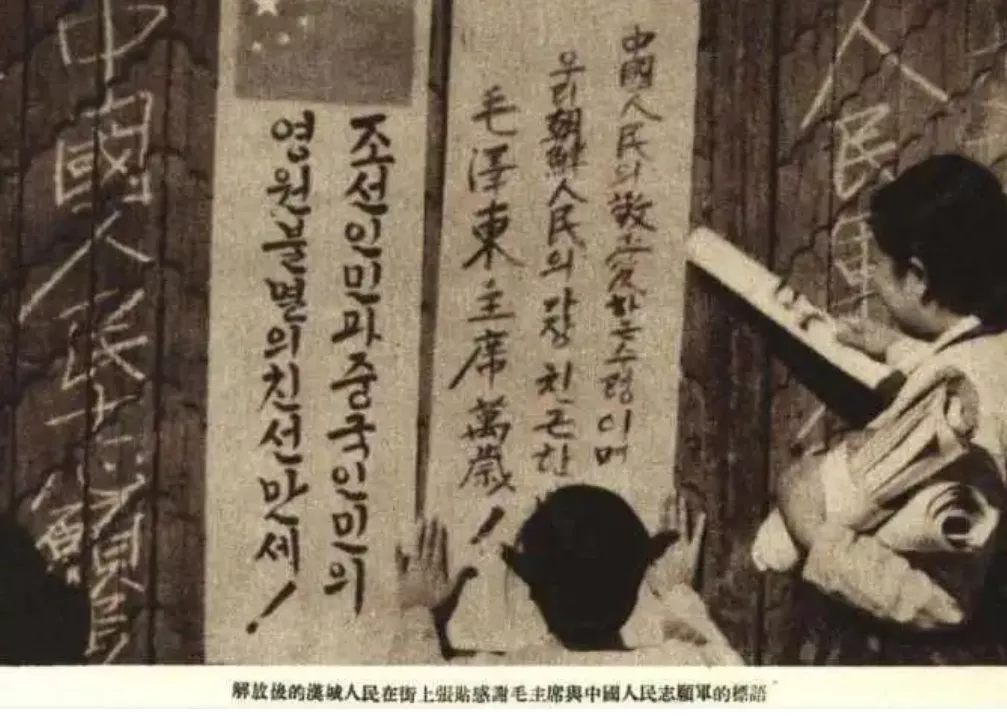 人民軍
中國人民의敬愛하는수령이며
우리朝鮮人民의가장친근한
毛澤東主席萬歲!
조선인민과중국인민의
영원불멸의친선만세!
中國人民
解放後的漢城人民在街上張貼感謝毛主席與中國人民志願軍的標語